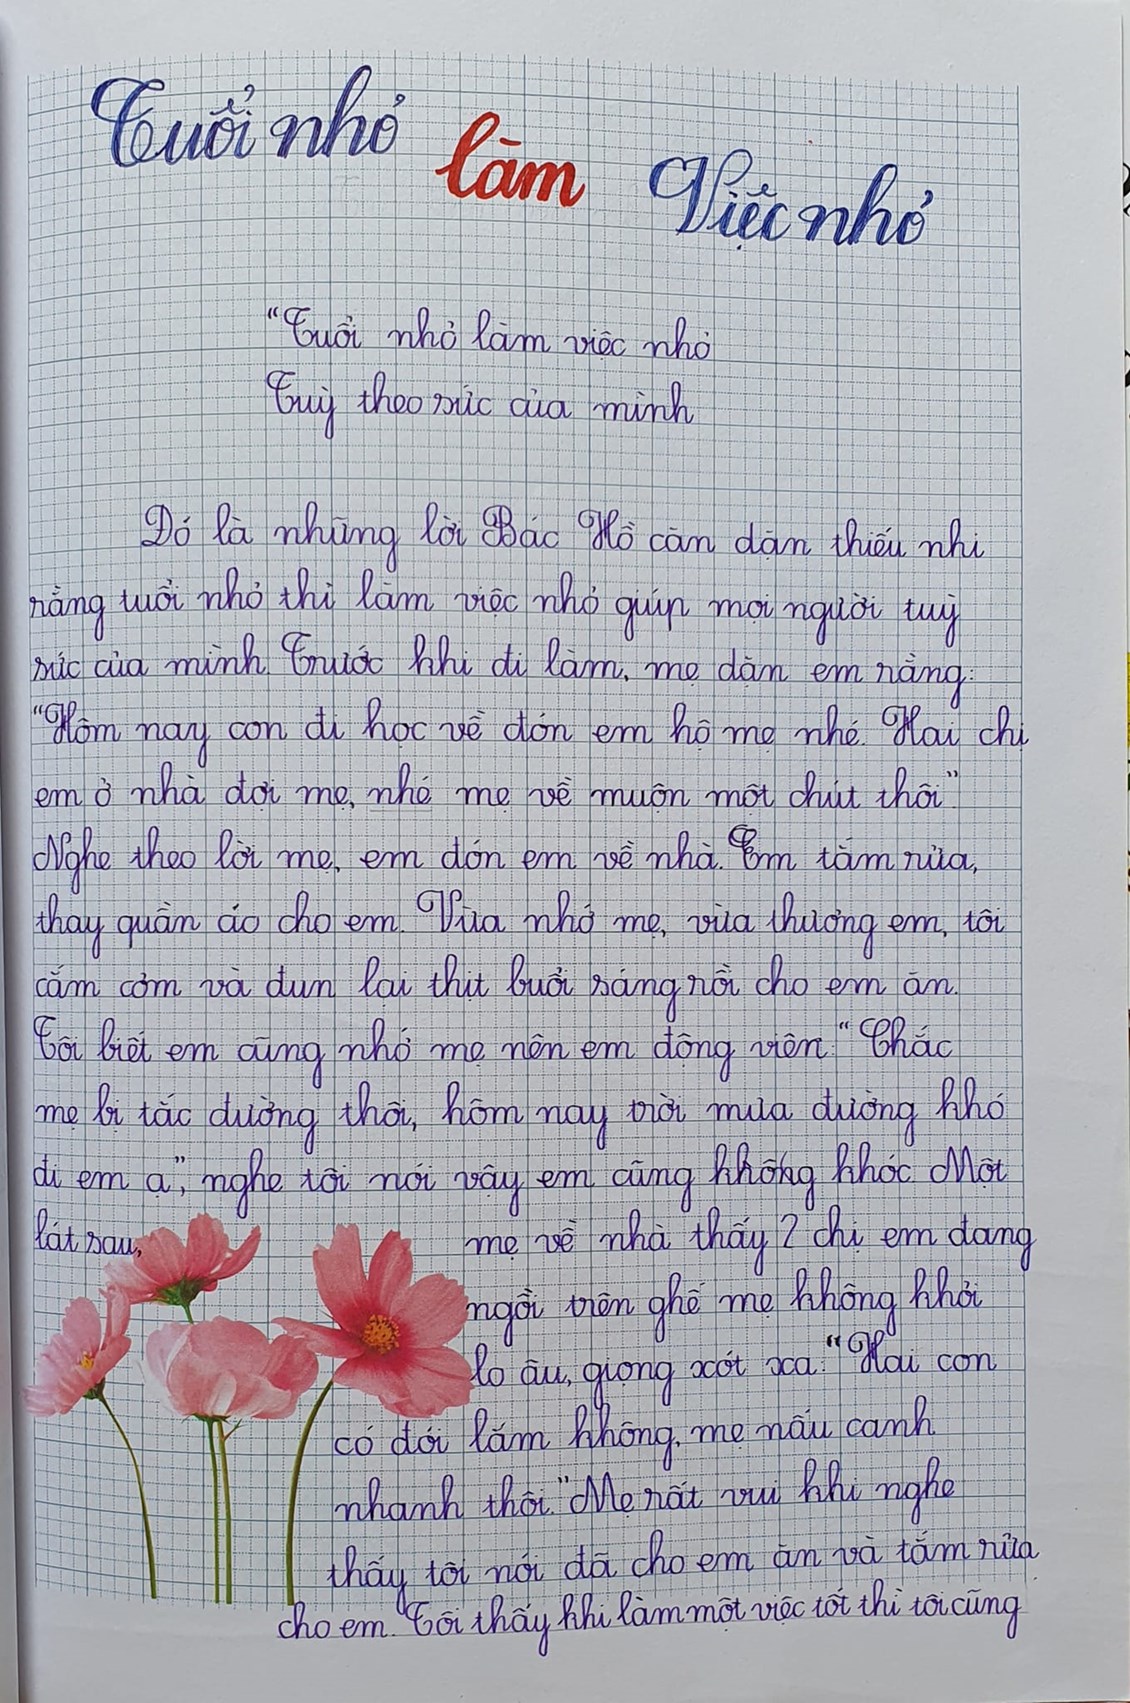 Tuổi nhỏ làm Việc nhỏ
"Tuổi nhỏ làm việc nhỏ
Tuỳ theo sức của mình
Đó là những lời Bác Hồ căn dặn thiếu nhi
rằng tuổi nhỏ thì làm việc nhỏ giúp mọi người tuỳ
sức của mình. Trước khi đi làm, mẹ dặn em rằng:
"Hôm nay con đi học về đón em hộ mẹ nhé. Hai chị
em ở nhà đợi mẹ, nhé mẹ về muộn một chút thôi".
Nghe theo lời mẹ, em đón em về nhà. Em tắm rửa,
thay quần áo cho em. Vừa nhớ mẹ, vừa thương em, tôi
cắm cơm và đun lại thịt buổi sáng rồi cho em ăn.
Tôi biết em cũng nhớ mẹ nên em động viên: "Chắc
mẹ bị tắc đường thôi, hôm nay trời mưa đường khó
đi em ạ", nghe tôi nói vậy em cũng không khóc. Một
lát sau, mẹ về nhà thấy 2 chị em đang
ngồi trên ghế mẹ không khỏi
lo âu, giọng xót xa: "Hai con
có đói lắm không, mẹ nấu canh
nhanh thôi." Mẹ rất vui khi nghe
thấy tôi nói đã cho em ăn và tắm rửa
cho em. Tôi thấy khi làm một việc tốt thì tôi cũng